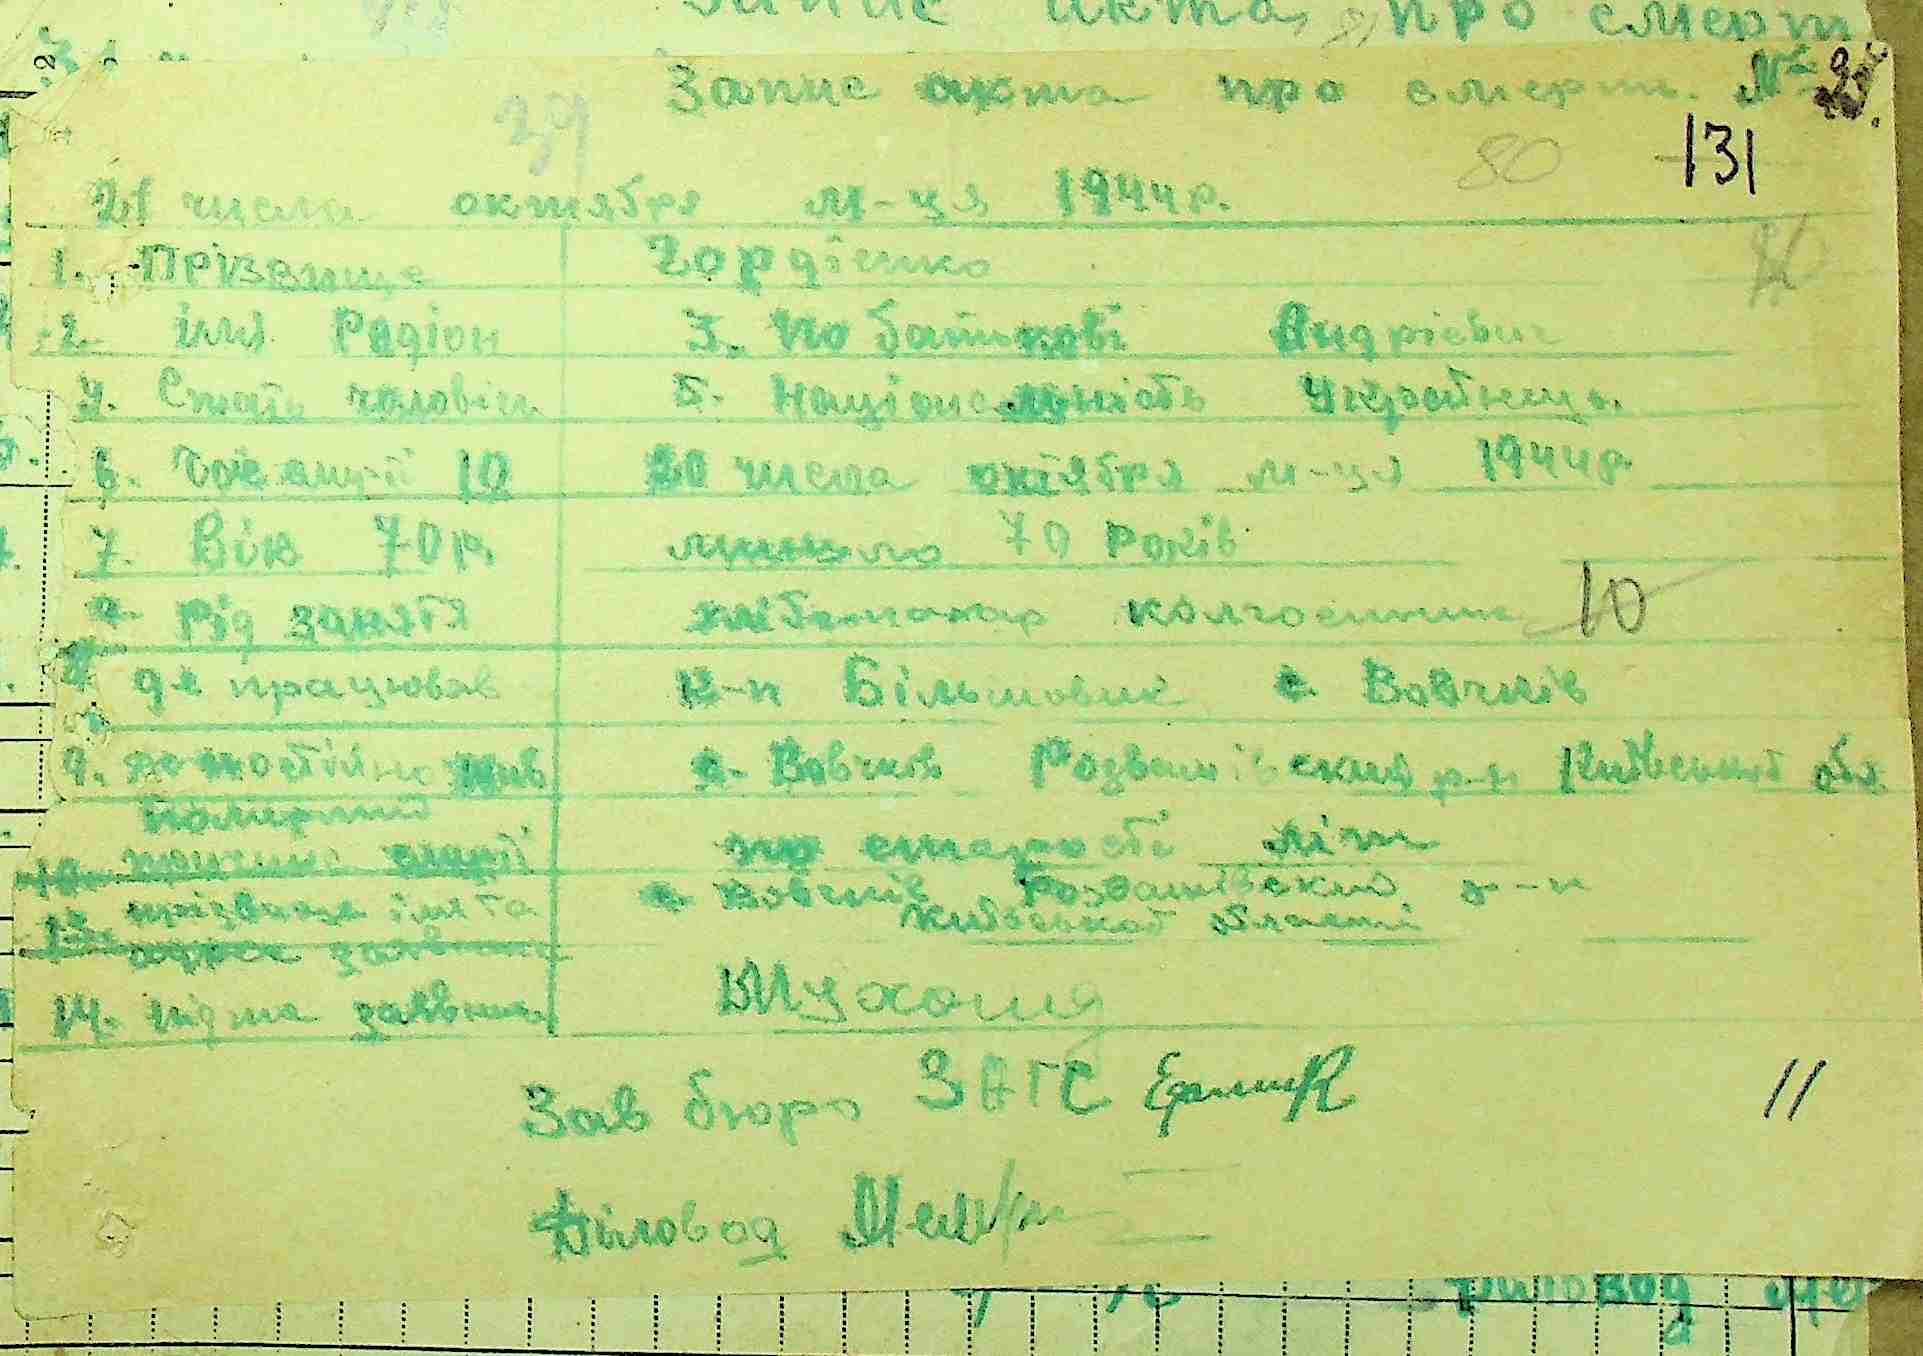 Запис акта про смерт
Запис акта про смерть. №
29
80 131
21 числа октября м-ця 1944 р.
1. Прізвище Гордієнко
2. імя Радіон 3. По батькові Андрієвич
4. Стать чоловіч 5. Національність Українець.
6. смерті 10 20 числа октября м-ця 1944 р.
7. Вік 70 р. минуло 70 років
Рід занятя хлібопахар колгоспник 10
де працював к-п Більшовик с. Вовчків
9. постійно жив с. Вовчків Розважівський р-н Київський обл
Померший
10. причина смерті по старості літ
прізвище імя та с. Вовчків Розважівский р-н
адреса заявника Київської області
14. підпис заявника
Зав бюро ЗАГС 11
Діловод
Діловод